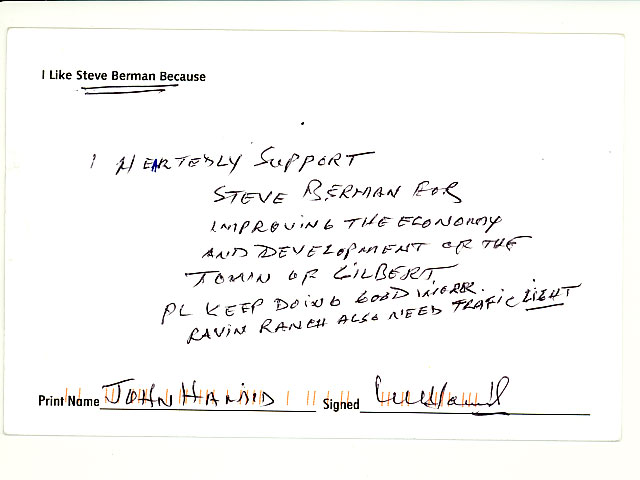 I Like Steve Berman Because
I HEARTEDLY SUPPORT
STEVE BERMAN FOR
IMPROVING THE ECONOMY
AND DEVELOPMENT OF THE
TOWN OF GILBERT
PL KEEP DOING GOOD WORK.
RAVIN RANCH ALSO NEED TRAFIC LIGHT
Print Name JOHN HAMID Signed